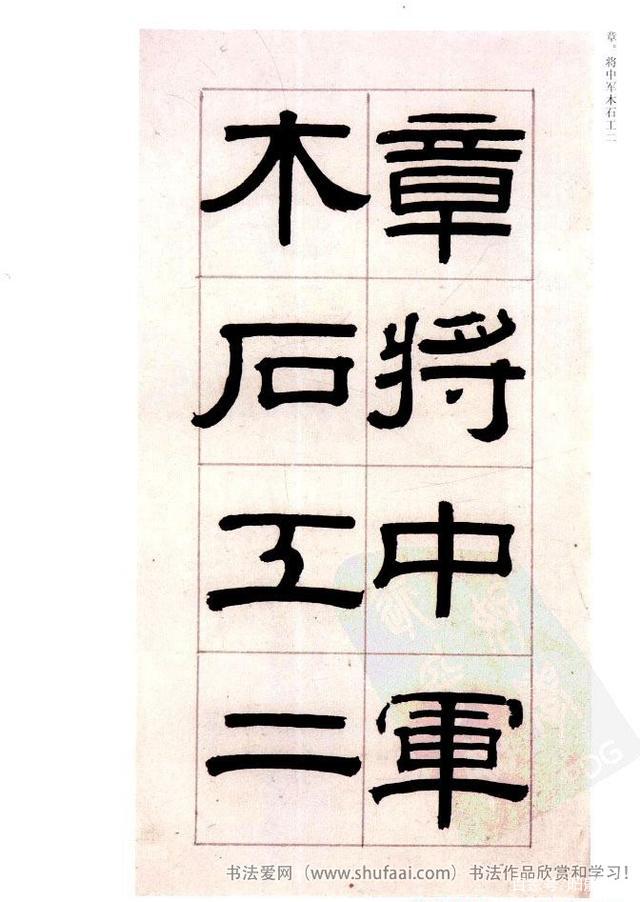 章。将中军木石工二
章將中軍
木石工二
书法爱网（www.shufaai.com）书法作品欣赏和学习！